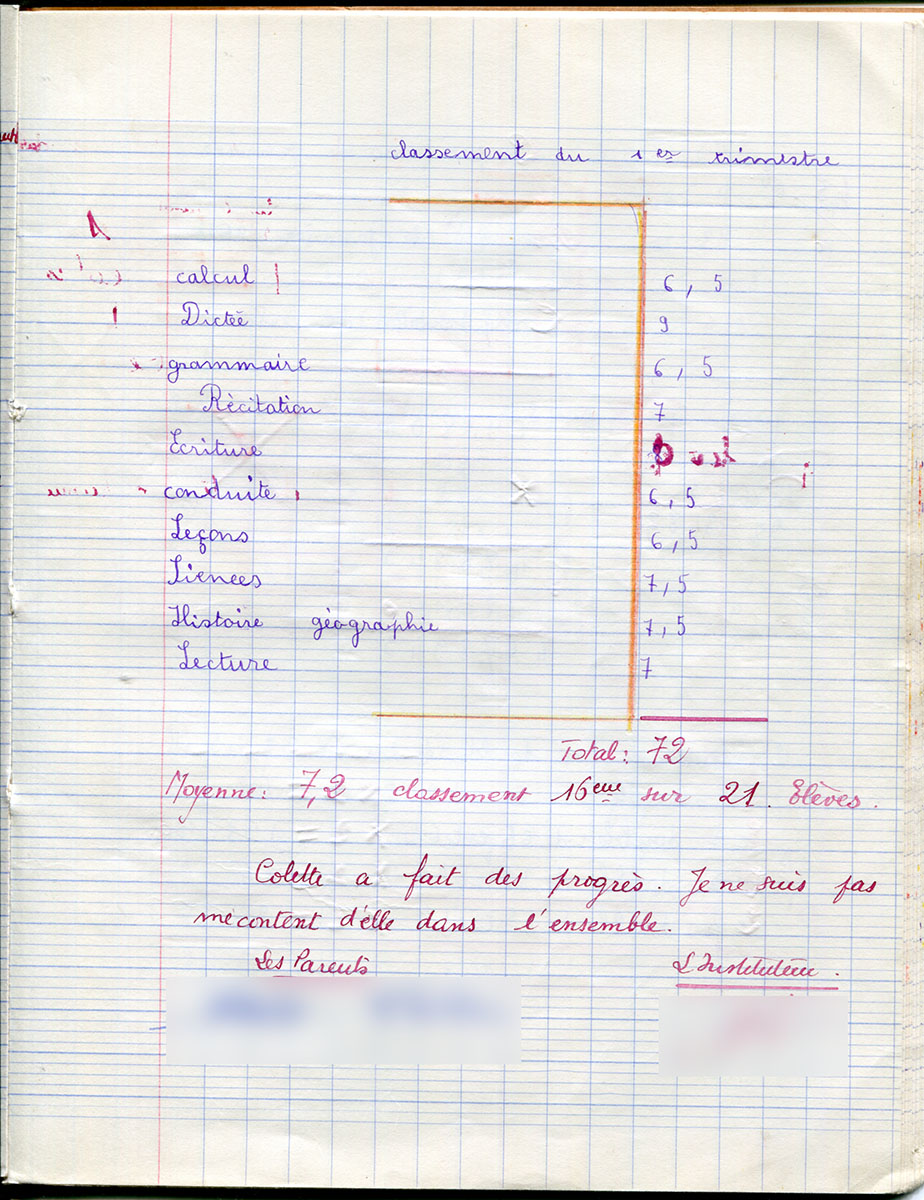 classement du 1er trimestre
calcul 6,5
Dictée 9
grammaire 6,5
Récitation 7
Ecriture
conduite 6,5
Leçons 6,5
Siences 7,5
Histoire géographie 7,5
Lecture 7
Total: 72
Moyenne: 7,2 classement 16eme sur 21. Elèves.
Colette a fait des progrès. Je ne suis pas
mecontent d'elle dans l'ensemble.
Les Parents L'Instituteur.